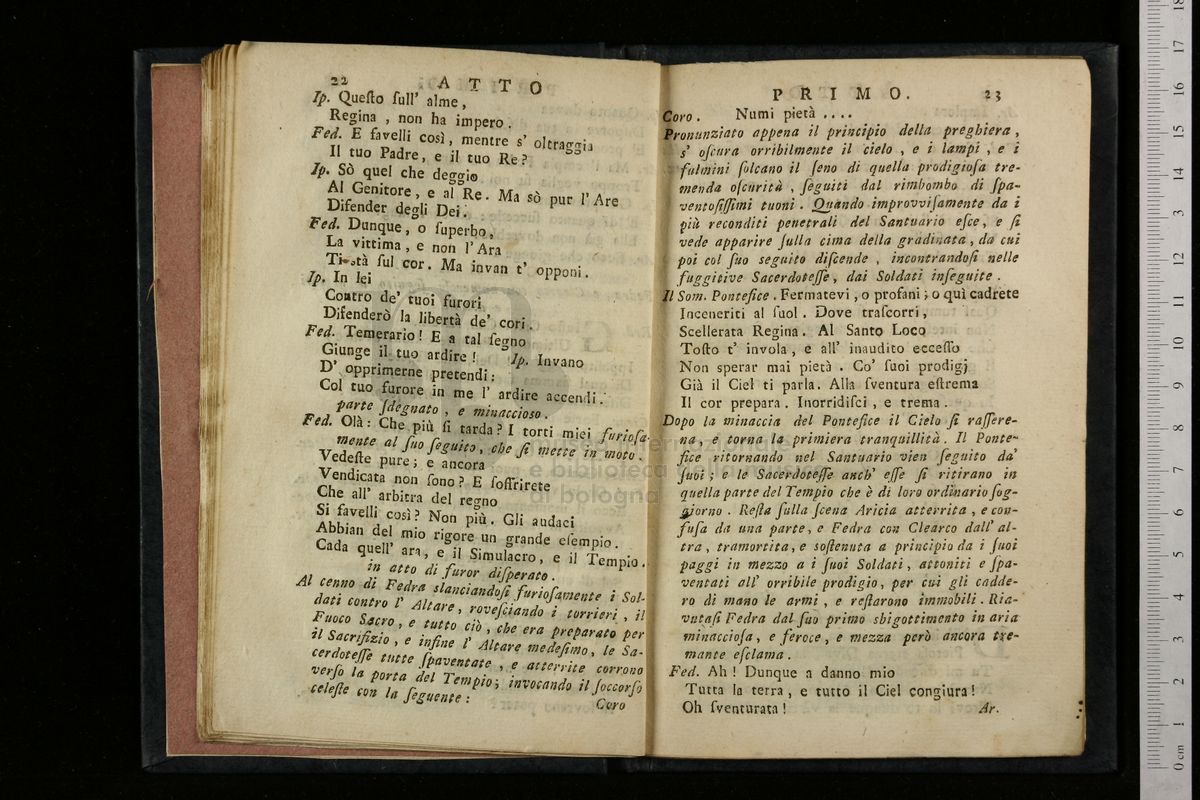 22 ATTO
Ip. Queſto ſull' alme,
Regina, non ha impero.
Fed. E favelli così, mentre s' oltraggia
Il tuo Padre, e il tuo Re?
Ip. Sò quel che deggio
Al Genitore, e al Re. Ma sò pur l' Are
Difender degli Dei.
Fed. Dunque, o ſuperbo,
La vittima, e non l' Ara
Ti ſtà ſul cor. Ma invan t' opponi.
Ip. In lei
Contro de' tuoi furori
Difenderò la libertà de' cori.
Fed. Temerario! E a tal ſegno
Giunge il tuo ardire! Ip. Invano
D' opprimerne pretendi:
Col tuo furore in me l' ardire accendi.
parte ſdegnato, e minaccioſo.
Fed. Olà: Che più ſi tarda? I torti miei furioſa-
mente al ſuo ſeguito, che ſi mette in moto.
Vedeſte pure; e ancora
Vendicata non ſono? E ſoffrirete
Che all' arbitra del regno
Si favelli così? Non più. Gli audaci
Abbian del mio rigore un grande eſempio.
Cada quell' ara, e il Simulacro, e il Tempio.
in atto di furor diſperato.
Al cenno di Fedra slanciandoſi furioſamente i Sol-
dati contro l' Altare, roveſciando i torrieri, il
Fuoco Sacro, e tutto ciò, che era preparato per
il Sacrifizio, e infine l' Altare medeſimo, le Sa-
cerdoteſſe tutte ſpaventate, e atterrite corrono
verſo la porta del Tempio; invocando il ſoccorſo
celeſte con la ſeguente:
Coro
PRIMO. 23
Coro. Numi pietà ....
Pronunziato appena il principio della preghiera,
s' oſcura orribilmente il cielo, e i lampi, e i
fulmini ſolcano il ſeno di quella prodigioſa tre-
menda oſcurità, ſeguiti dal rimbombo di ſpa-
ventoſiſſimi tuoni. Quando improvviſamente da i
più reconditi penetrali del Santuario eſce, e ſi
vede apparire ſulla cima della gradinata, da cui
poi col ſuo seguito diſcende, incontrandoſi nelle
fuggitive Sacerdoteſſe, dai Soldati inſeguite.
Il Som. Pontefice. Fermatevi, o profani; o quì cadrete
Inceneriti al ſuol. Dove traſcorri,
Scellerata Regina. Al Santo Loco
Toſto t' invola, e all' inaudito ecceſſo
Non sperar mai pietà. Co' ſuoi prodigj
Già il Ciel ti parla. Alla ſventura eſtrema
Il cor prepara. Inorridiſci, e trema.
Dopo la minaccia del Pontefice il Cielo ſi raſſere-
na, e torna la primiera tranquillità. Il Ponte-
fice ritornando nel Santuario vien ſeguito da'
ſuoi; e le Sacerdoteſſe anch' eſſe ſi ritirano in
quella parte del Tempio che è di loro ordinario ſog-
giorno. Reſta ſulla ſcena Aricia atterrita, e con-
fuſa da una parte, e Fedra con Clearco dall' al-
tra, tramortita, e ſoſtenuta a principio da i ſuoi
paggi in mezzo a i ſuoi Soldati, attoniti e ſpa-
ventati all' orribile prodigio, per cui gli cadde-
ro di mano le armi, e reſtarono immobili. Ria-
vutaſi Fedra dal ſuo primo sbigottimento in aria
minaccioſa, e feroce, e mezza però ancora tre-
mante eſclama.
Fed. Ah! Dunque a danno mio
Tutta la terra, e tutto il Ciel congiura!
Oh ſventurata! Ar.
museo internazionale
e biblioteca della musica
di bologna
0 cm 1 2 3 4 5 6 7 8 9 10 11 12 13 14 15 16 17 18